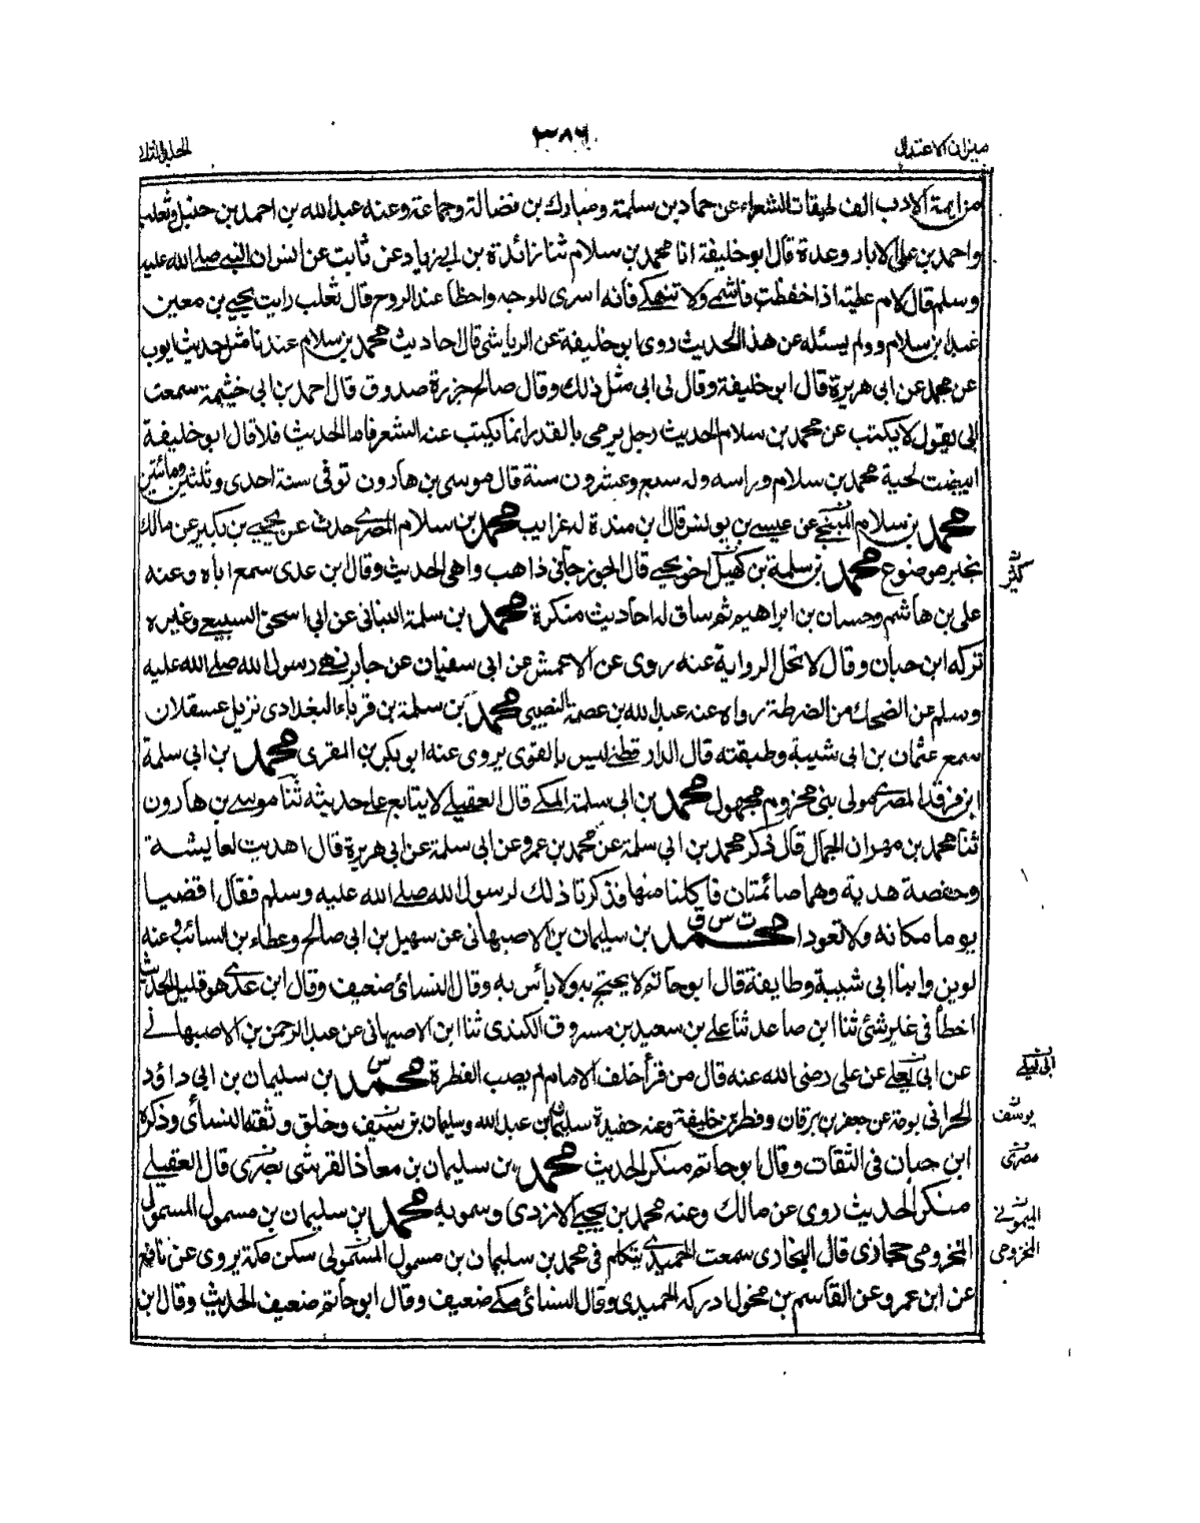 ميزان الاعتدال
٣٨٦
الجلد الثاني
من ايمة الادب الف طبقات الشعراء عن حماد بن سلمة ومبارك بن فضالة وجماعة وعنه عبد الله بن احمد بن حنبل وثعلب
واحمد بن على الابار وعدة قال ابو خليفة انا محمد بن سلام ثنا زائدة بن ابى عن ثابت عن انس ان النبى صلى الله عليه
وسلم قال لام عطية اذا خفضت فاشمى ولا تنهكى فانه اسرى للوجه واحظا عند الزوج قال ثعلب رايت يحيى بن معين
عند ابن سلام وولم يسئله عن هذا الحديث روى ابو خليفة عن الرياشى قال احاديث محمد بن سلام عندنا مثل حديث ايوب
عن محمد عن ابى هريرة قال ابو خليفة وقال لى ابى مثل ذلك وقال صالح جزرة صدوق قال احمد بن ابى خيثمة سمعت
ابى يقول لا يكتب عن محمد بن سلام الحديث رجل يرمى بالقدر انما يكتب عنه الشعر فاما الحديث فلا قال ابو خليفة
ابيضت لحية محمد بن سلام وراسه وله سبع وعشرون سنة قال موسى بن هارون توفى سنة احدى وثلثين ومائتين
محمد بن سلام المنبجى عن عيسى بن يونس قال بن مندة له غرايب محمد بن سلام المصرى حدث عن يحيى بن بكير عن مالك
بخبر موضوع محمد بن سلمة بن كهيل اخو يحيى قال الجوزجانى ذاهب واهى الحديث وقال بن عدى سمع اباه وعنه
على بن هاشم وحسان بن ابراهيم ثم ساق له احاديث منكرة محمد بن سلمة البنانى عن ابى اسحق السبيعى وغيره
تركه ابن حبان وقال لا تحل الرواية عنه روى عن الاعمش عن ابى سفيان عن جابر نهى رسول الله صلى الله عليه
وسلم عن الضحك من الضرطة رواه عنه عبد الله بن عصمة النصيبى محمد بن سلمة بن قرباء البغدادى نزيل عسقلان
سمع عثمان بن ابى شيبة وطبقته قال الدارقطنى ليس بالقوى يروى عنه ابو بكر بن المقرى محمد بن ابى سلمة
ابن فرقد المصرى مولى بنى مخزوم مجهول محمد بن ابى سلمة المكى قال العقيلى لا يتابع على حديثه ثنا موسى بن هارون
ثنا محمد بن مهران الجمال قال ذكر محمد بن ابى سلمة عن محمد بن عمرو عن ابى سلمة عن ابى هريرة قال اهديت لعايشة
وحفصة هدية وهما صائمتان فاكلنا منها فذكرتا ذلك لرسول الله صلى الله عليه وسلم فقال اقضيا
يوما مكانه ولا تعودا محمد ت س ق بن سليمان بن الاصبهانى عن سهيل بن ابى صالح وعطاء بن السائب وعنه
لوين وابنا ابى شيبة وطايفة قال ابو حاتم لا يحتج به ولا باس به وقال النسائى ضعيف وقال ابن عدى هو قليل الحديث
اخطأ فى غير شئ ثنا ابن صاعد ثنا على بن سعيد بن مسروق الكندى ثنا ابن الاصبهانى عن عبد الرحمن بن الاصبهانى
عن ابى يعلى عن على رضى الله عنه قال من قرأ خلف الامام لم يصب الفطرة محمد س بن سليمان بن ابى داؤد
الحرانى بومة عن جعفر بن برقان وفطر بن خليفة وعنه حفيدة سليمان بن عبد الله وسليمان بن سيف وخلق وثقه النسائى وذكره
ابن حبان فى الثقات وقال ابو حاتم منكر الحديث محمد بن سليمان بن معاذ القرشى بصرى قال العقيلى
منكر الحديث روى عن مالك وعنه محمد بن يحيى الازدى وسمويه محمد بن سليمان بن مسمول المسمولى
المخزومى حجازى قال البخارى سمعت الحميدى يتكلم فى محمد بن سليمان بن مسمول المسمولى سكن مكة يروى عن نافع
عن ابن عمر وعن القاسم بن مخول ادركه الحميدى وقال النسائى مكى ضعيف وقال ابو حاتم ضعيف الحديث وقال ابن
يوسف
مصرى
المخزومى